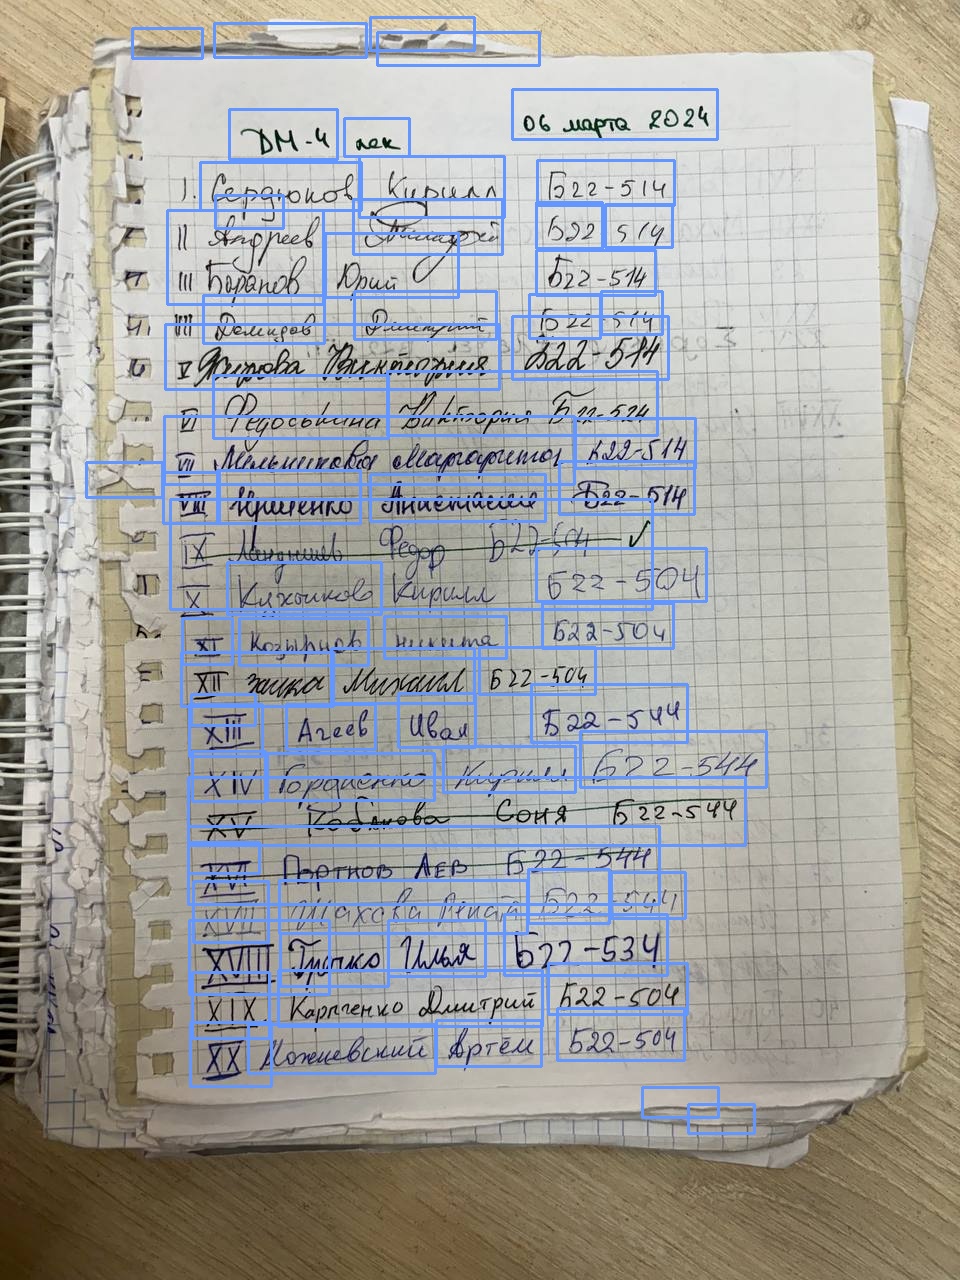 ДМ-4 лек 06 марта 2024
I. Сердюков Кирилл Б22-514
II Андреев Тимофей Б22 514
III Баранов Юрий Б22-514
IIII Демидов Дмитрий Б22-514
V Жирова Виктория Б22-514
VI Федоськина Виктория Б22-524
VII Мельникова Маргарита Б22-514
VIII Юрченко Анастасия Б22-514
IX Федор Б22-504 ✓
X Кирилл Б22-504
XI Козырнов никита Б22-504
XII Заика Михаил Б22-504
XIII Агеев Иван Б22-544
XIV Гордиенко Кирилл Б22-544
XV Кобякова Соня Б22-544
XVI Портнов Лев Б22-544
XVII Ренат Б22-544
XVIII Громко Илья Б22-534
XIX Карпенко Дмитрий Б22-504
XX Можиевский Артём Б22-504